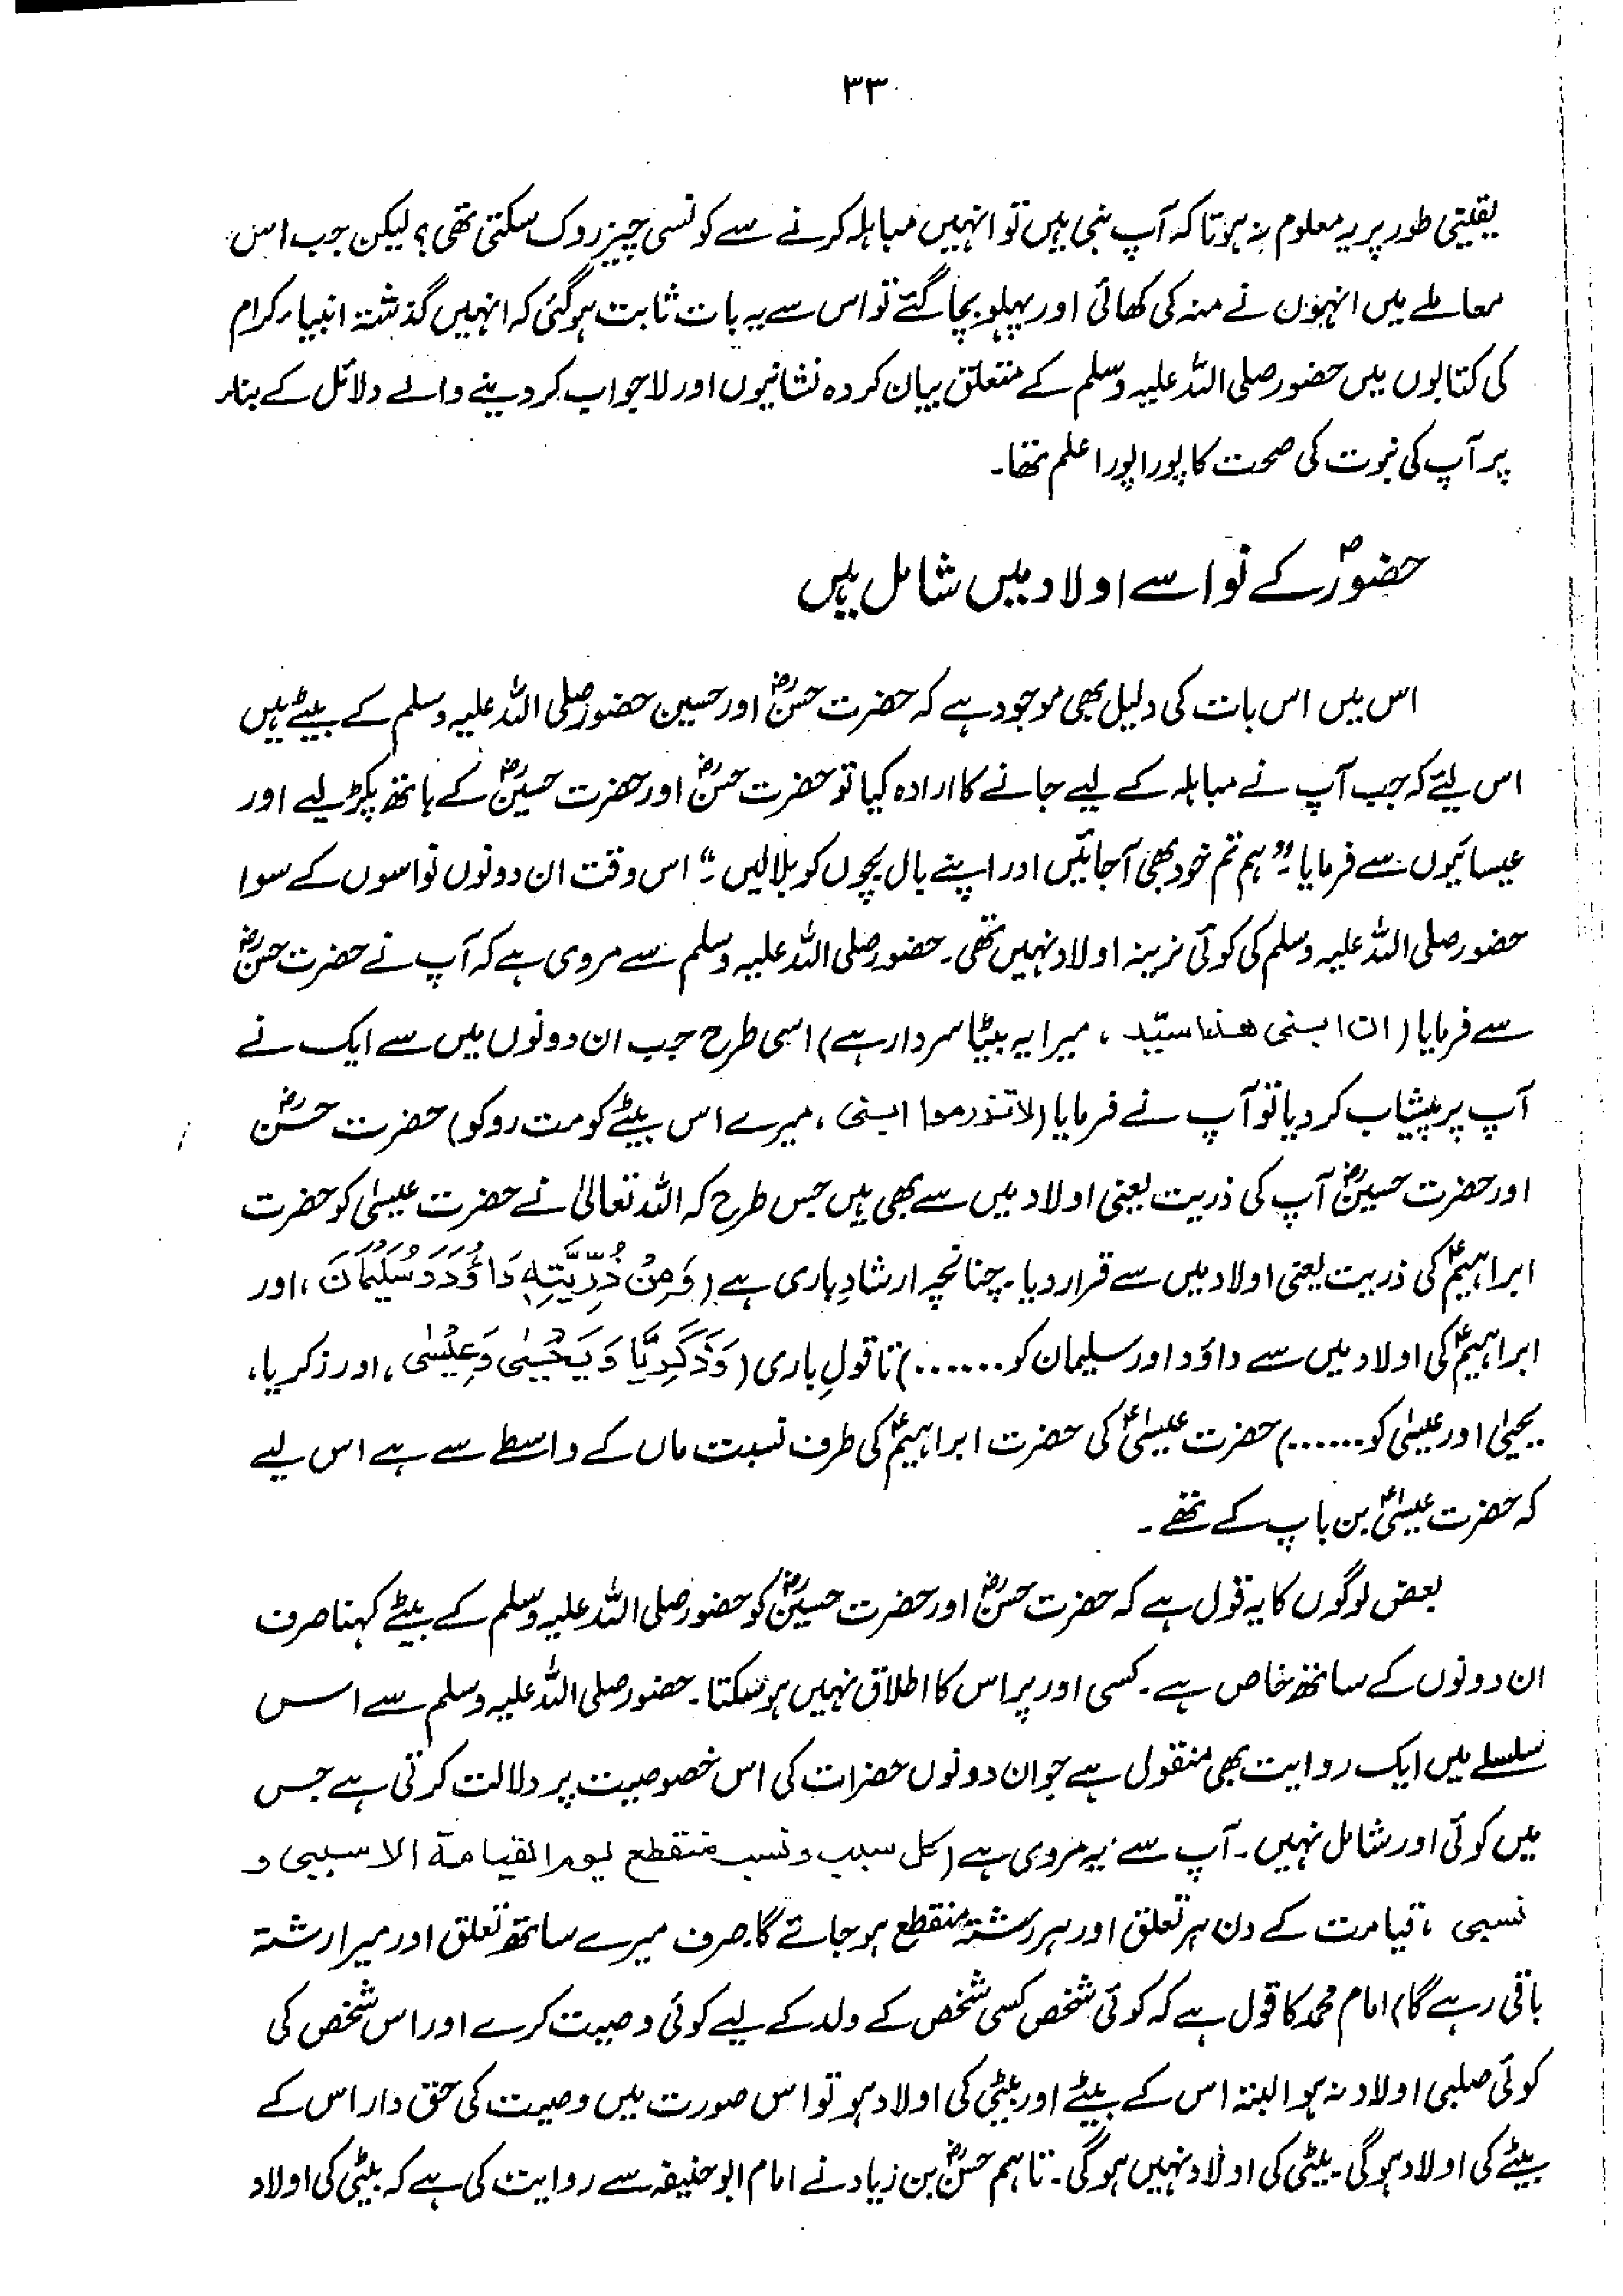 ۳۳
یقینی طور پر یہ معلوم نہ ہوتا کہ آپ نبی ہیں تو انہیں مباہلہ کرنے سے کونسی چیز روک سکتی تھی؟ لیکن جب اس
معاملے میں انہوں نے منہ کی کھائی اور پہلو بچا گئے تو اس سے یہ بات ثابت ہوگئی کہ انہیں گذشتہ انبیاء کرام
کی کتابوں میں حضور صلی اللہ علیہ وسلم کے متعلق بیان کردہ نشانیوں اور لاجواب کر دینے والے دلائل کے بناء
پر آپ کی نبوت کی صحت کا پورا پورا علم تھا۔
حضورؐ کے نواسے اولاد میں شامل ہیں
اس میں اس بات کی دلیل بھی موجود ہے کہ حضرت حسنؓ اور حسین حضور صلی اللہ علیہ وسلم کے بیٹے ہیں
اس لیئے کہ جب آپ نے مباہلہ کے لیے جانے کا ارادہ کیا تو حضرت حسنؓ اور حضرت حسینؓ کے ہاتھ پکڑ لیے اور
عیسائیوں سے فرمایا :"ہم تم خود بھی آجائیں اور اپنے بال بچوں کو بلالیں۔" اس وقت ان دونوں نواسوں کے سوا
حضور صلی اللہ علیہ وسلم کی کوئی نرینہ اولاد نہیں تھی۔ حضور صلی اللہ علیہ وسلم سے مروی ہے کہ آپ نے حضرت حسنؓ
سے فرمایا (ان ابنی ھذا سیّد ، میرا یہ بیٹا سردار ہے) اسی طرح جب ان دونوں میں سے ایک نے
آپ پر پیشاب کر دیا تو آپ نے فرمایا (لا تزرموا ابنی ، میرے اس بیٹے کو مت روکو) حضرت حسنؓ
اور حضرت حسینؓ آپ کی ذریت یعنی اولاد میں سے بھی ہیں جس طرح کہ اللہ تعالیٰ نے حضرت عیسیٰ کو حضرت
ابراہیمؑ کی ذریت یعنی اولاد میں سے قرار دیا۔ چنانچہ ارشادِ باری ہے (وَمِنْ ذُرِّيَّتِهٖ دَاوُدَ وَسُلَيْمَانَ ، اور
ابراہیمؑ کی اولاد میں سے داؤد اور سلیمان کو......) تا قولِ باری (وَزَكَرِيَّا وَيَحْيٰى وَعِيْسٰى ، اور زکریا،
یحییٰ اور عیسیٰ کو......) حضرت عیسیٰؑ کی حضرت ابراہیمؑ کی طرف نسبت ماں کے واسطے سے ہے اس لیے
کہ حضرت عیسیٰؑ بن باپ کے تھے۔
بعض لوگوں کا یہ قول ہے کہ حضرت حسنؓ اور حضرت حسینؓ کو حضور صلی اللہ علیہ وسلم کے بیٹے کہنا صرف
ان دونوں کے ساتھ خاص ہے۔ کسی اور پر اس کا اطلاق نہیں ہوسکتا۔ حضور صلی اللہ علیہ وسلم سے اس
سلسلے میں ایک روایت بھی منقول ہے جو ان دونوں حضرات کی اس خصوصیت پر دلالت کرتی ہے جس
میں کوئی اور شامل نہیں۔ آپ سے یہ مروی ہے (کل سبب و نسب منقطع یوم القیامة الا سببی و
نسبی ، قیامت کے دن ہر تعلق اور ہر رشتہ منقطع ہو جائے گا صرف میرے ساتھ تعلق اور میرا رشتہ
باقی رہے گا) امام محمد کا قول ہے کہ کوئی شخص کسی شخص کے ولد کے لیے کوئی وصیت کرے اور اس شخص کی
کوئی صلبی اولاد نہ ہو البتہ اس کے بیٹے اور بیٹی کی اولاد ہو تو اس صورت میں وصیت کی حق دار اس کے
بیٹے کی اولاد ہوگی۔ بیٹی کی اولاد نہیں ہوگی۔ تاہم حسنؓ بن زیاد نے امام ابو حنیفہ سے روایت کی ہے کہ بیٹی کی اولاد